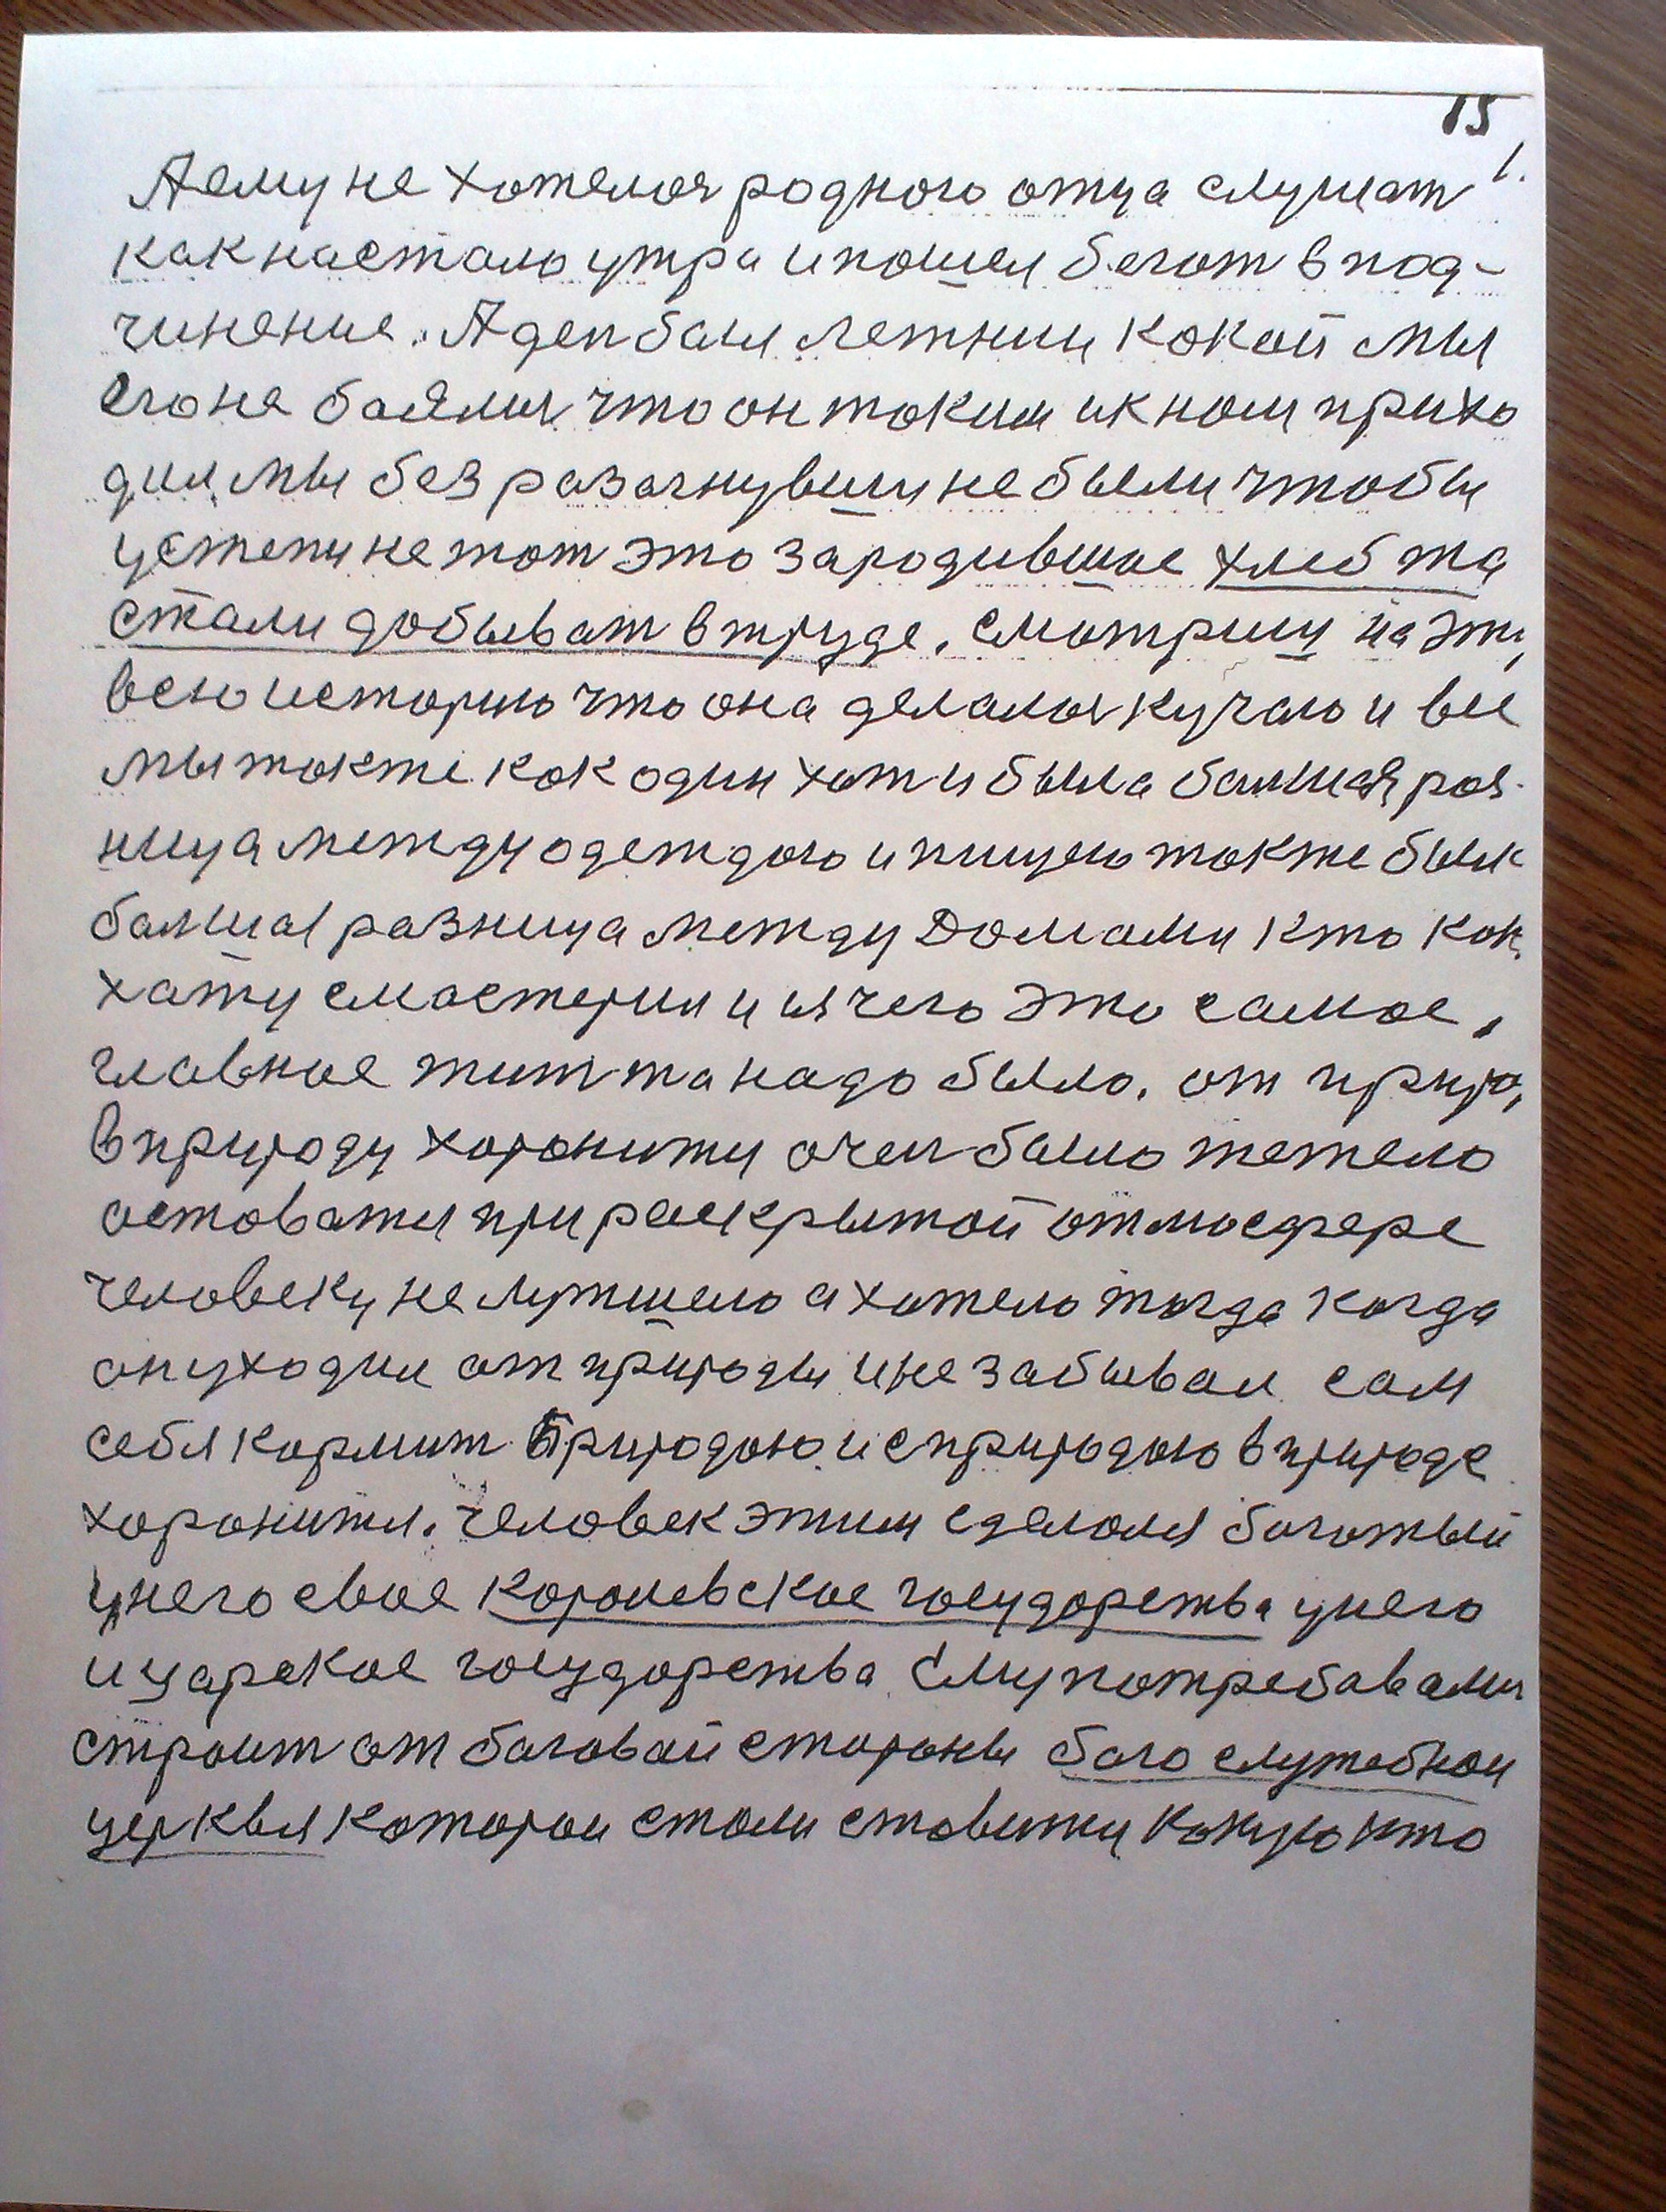 15
1.
А ему не хотелося родного отца слушат
как настало утра и пошел бегат в под-
чинение. А ден был летнии какой мы
его не баялис что он таким и к ном прихо
дил, мы без разагнувши не были чтобы
у степи не тот это зародившое хлеб та
стали добыват в труде. Смотрим на эту
всю историю что она делалас кучаю и все
мы также как один хот и была балшая раз-
ница между одеждою и пищею также была
балшая разница между домами кто как
хату смастерил и из чего это самое,
главное жит та надо было. от приро,
в природу хоронитц очен было тежело
аставатц при раскрытой отмосфере
человеку не лутшело а хотело тогда когда
он уходил от природы и не забывал сам
себя кормит Природою и с природою в природе
хоронится. Человек этим сделался богатый
у него свое королевское государства у него
и царское государства ему потребавалис
строит от баговай стороны баго служебнои
церквя которои стали ставитц какую кто